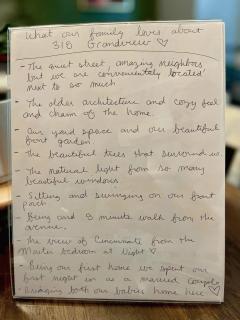 What our family loves about
319 Grandview ♡
- The quiet street, amazing neighbors
but we are conveniently located
next to so much
- The older architecture and cozy feel
and charm of the home.
- Our yard space and our beautiful
front garden
- The beautiful trees that surround us.
- The natural light from so many
beautiful windows
- Sitting and swinging on our front
porch
- Being and 8 minute walk from the
avenue.
- The view of Cincinnati from the
Master bedroom at Night ♡
- Being our first home we spent our
first night in as a married couple
& bringing both our babies home here ♡